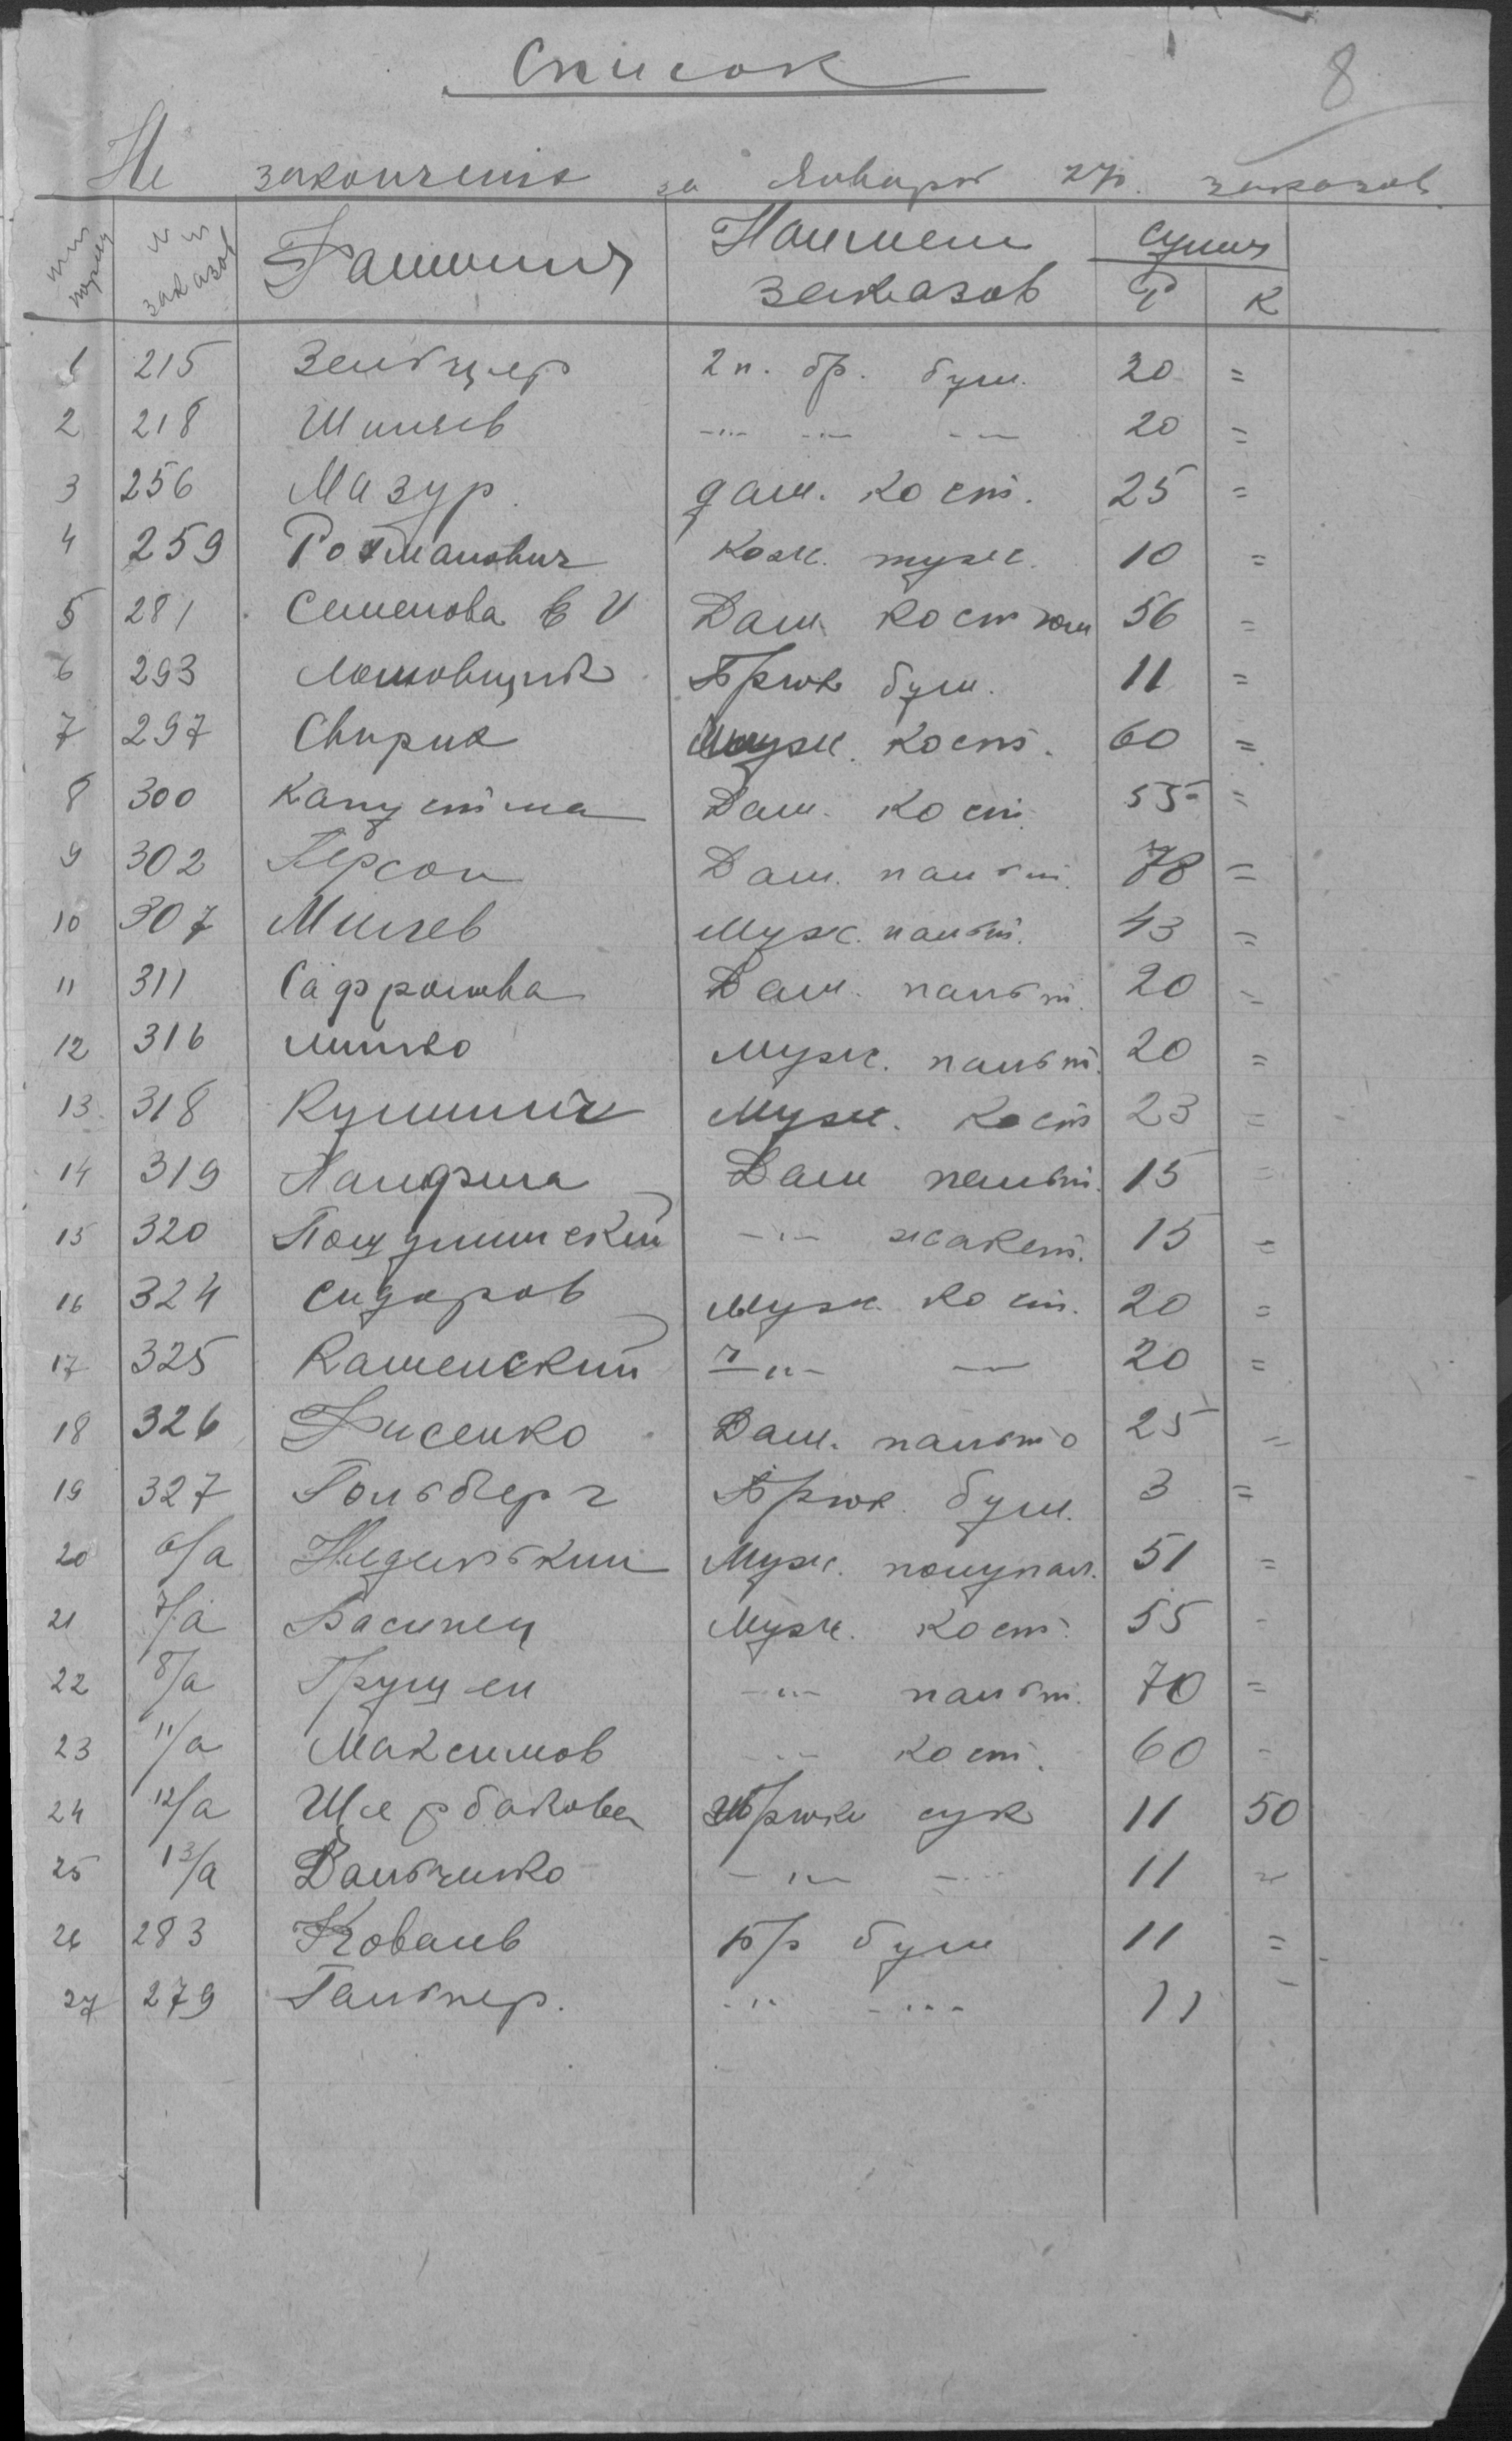 Список
8
Не закончених за Январь 27г. заказов
№№ заказов Фамилия Наимен заказов Сумма Р К
1 215 Зельцер 2 п. бр. бум. 20 =
2 218 20 =
3 256 Мазур дам. кост. 25 =
4 259 Рохманович кож. туж. 10 =
5 281 Семенова Е И Дам. костюм 56 =
6 293 Брюк бум. 11 =
7 297 Свирик Муж. кост. 60 =
8 300 Капустина Дам. кост. 55 =
9 302 Герсон Дам. пальт. 78 =
10 307 Муж. пальт. 43 =
11 311 Сафронова Дам. пальт. 20 =
12 316 Муж. пальт. 20 =
13 318 Муж. кост 23 =
14 319 Панфила Дам пальт. 15 =
15 320 -"- жакет. 15 =
16 324 Сидоров Муж. кост. 20 =
17 325 Каменский -"- — 20 =
18 326 Фисенко Дам. пальто 25 =
19 327 Гольберг Брюк. бум. 3 =
20 6/а Муж. полупал. 51 =
21 7/а Василец Муж. кост. 55 -
22 8/а Грущен -"- пальт. 70 =
23 11/а Максимов -"- кост. 60 =
24 12/а Щербакова Брюки сук 11 50
25 13/а Вальченко -"- -"- 11 =
26 283 Ковалев Бр бум 11 =
27 279 Гальпер. -"- -"- 11 -